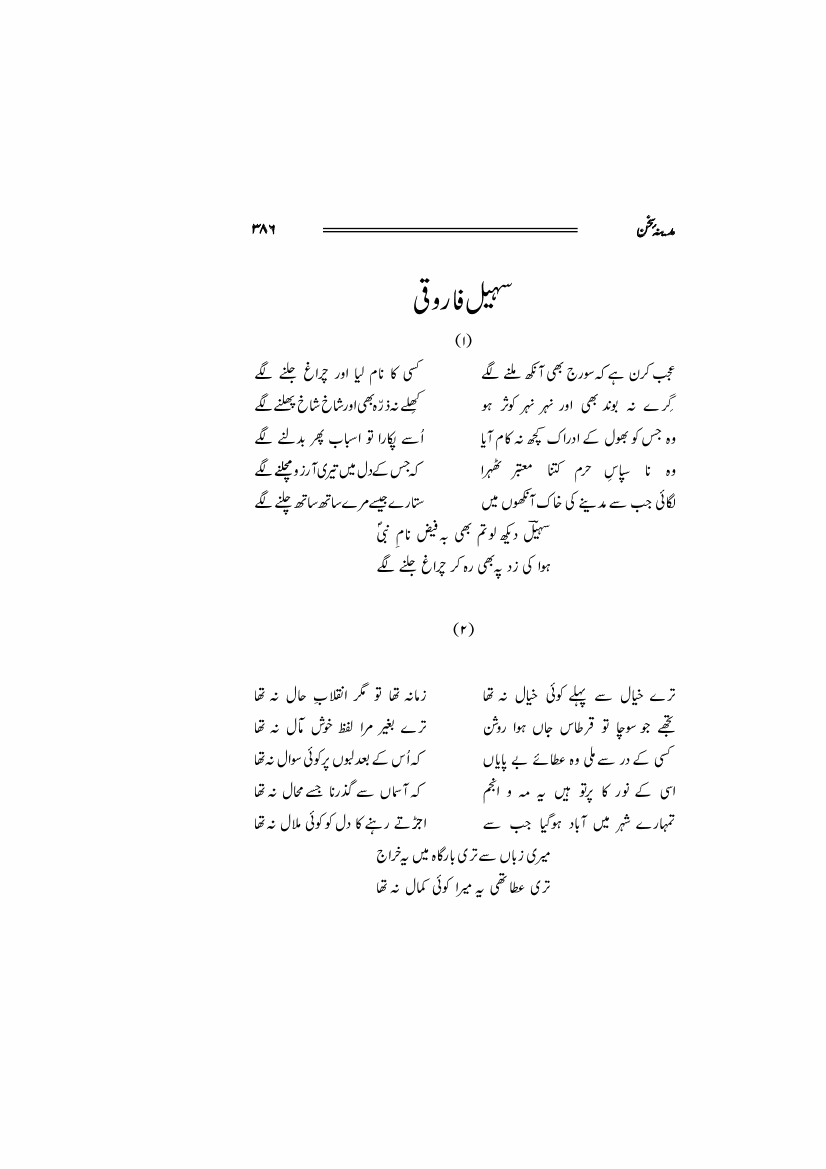 مدینہ سخن ۳۸۶
سہیل فاروقی
(۱)
عجب کرن ہے کہ سورج بھی آنکھ ملنے لگے کسی کا نام لیا اور چراغ جلنے لگے
گِرے نہ بوند بھی اور نہر نہر کوثر ہو کھِلے نہ ذرّہ بھی اور شاخ شاخ پھلنے لگے
وہ جس کو بھول کے ادراک کچھ نہ کام آیا اُسے پکارا تو اسباب پھر بدلنے لگے
وہ نا سپاسِ حرم کتنا معتبر ٹھہرا کہ جس کے دل میں تیری آرزو مچلنے لگے
لگائی جب سے مدینے کی خاک آنکھوں میں ستارے جیسے مرے ساتھ ساتھ چلنے لگے
سہیلؔ دیکھ لو تم بھی بہ فیض نامِ نبیؐ
ہوا کی زد پہ بھی رہ کر چراغ جلنے لگے
(۲)
ترے خیال سے پہلے کوئی خیال نہ تھا زمانہ تھا تو مگر انقلابِ حال نہ تھا
تجھے جو سوچا تو قرطاس جاں ہوا روشن ترے بغیر مرا لفظ خوش مآل نہ تھا
کسی کے در سے ملی وہ عطائے بے پایاں کہ اُس کے بعد لبوں پر کوئی سوال نہ تھا
اسی کے نور کا پرتو ہیں یہ مہ و انجم کہ آسماں سے گذرنا جسے محال نہ تھا
تمہارے شہر میں آباد ہوگیا جب سے اجڑتے رہنے کا دل کو کوئی ملال نہ تھا
میری زباں سے تری بارگاہ میں یہ خراج
تری عطا تھی یہ میرا کوئی کمال نہ تھا